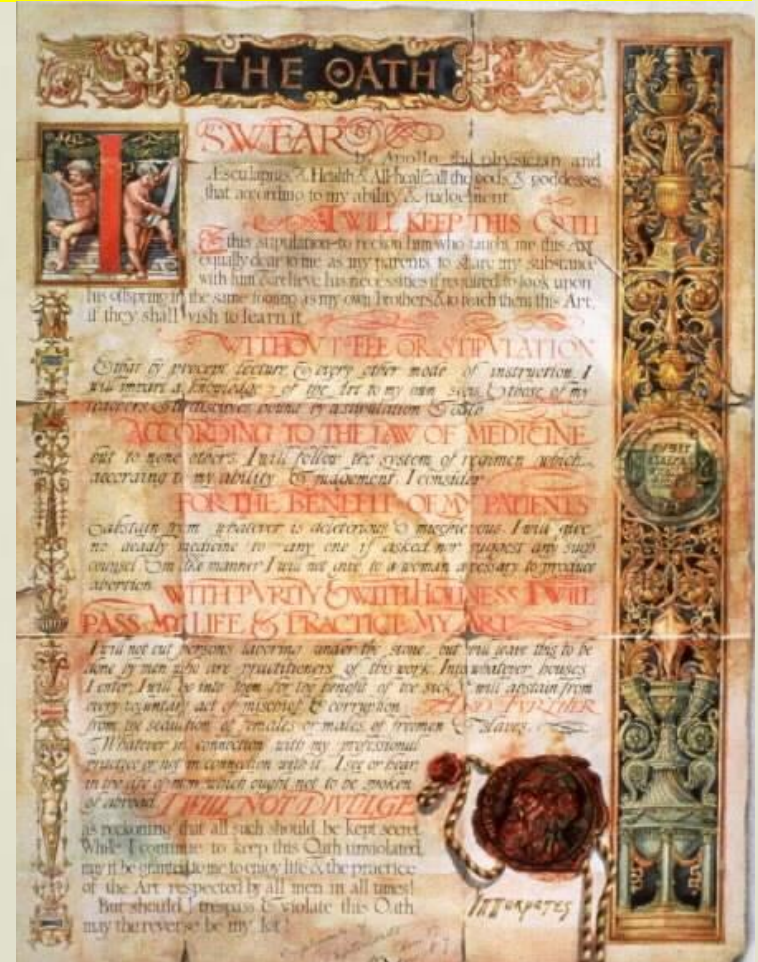 THE OATH
I SWEAR
by Apollo the physician and
Æsculapius, & Health & All-heal & all the gods & goddesses
that according to my ability & judgement
I WILL KEEP THIS OATH
& this stipulation-to reckon him who taught me this Art
equally dear to me as my parents to share my substance
with him & relieve his necessities if required to look upon
his offspring in the same footing as my own brothers & to teach them this Art,
if they shall wish to learn it
WITHOVT FEE OR STIPVLATION
& that by precept lecture & every other mode of instruction I
will impart a knowledge of the Art to my own sons & those of my
teachers & to disciples bound by a stipulation & oath
ACCORDING TO THE LAW OF MEDICINE
but to none others. I will follow the system of regimen which
according to my ability & judgement I consider
FOR THE BENEFIT OF MY PATIENTS
& abstain from whatever is deleterious & mischievous. I will give
no deadly medicine to any one if asked nor suggest any such
counsel & in like manner I will not give to a woman a pessary to produce
abortion
WITH PVRITY & WITH HOLINESS I WILL
PASS MY LIFE & PRACTICE MY ART
I will not cut persons laboring under the stone, but will leave this to be
done by men who are practitioners of this work. Into whatever houses
I enter, I will go into them for the benefit of the sick & will abstain from
every voluntary act of mischief & corruption AND FVRTHER
from the seduction of females or males, of freemen & slaves.
Whatever in connection with my professional
practice or not in connection with it, I see or hear,
in the life of men which ought not to be spoken
of abroad I WILL NOT DIVULGE
as reckoning that all such should be kept secret
While I continue to keep this Oath unviolated,
may it be granted to me to enjoy life & the practice
of the Art respected by all men in all times!
But should I trespass & violate this Oath
may the reverse be my lot!